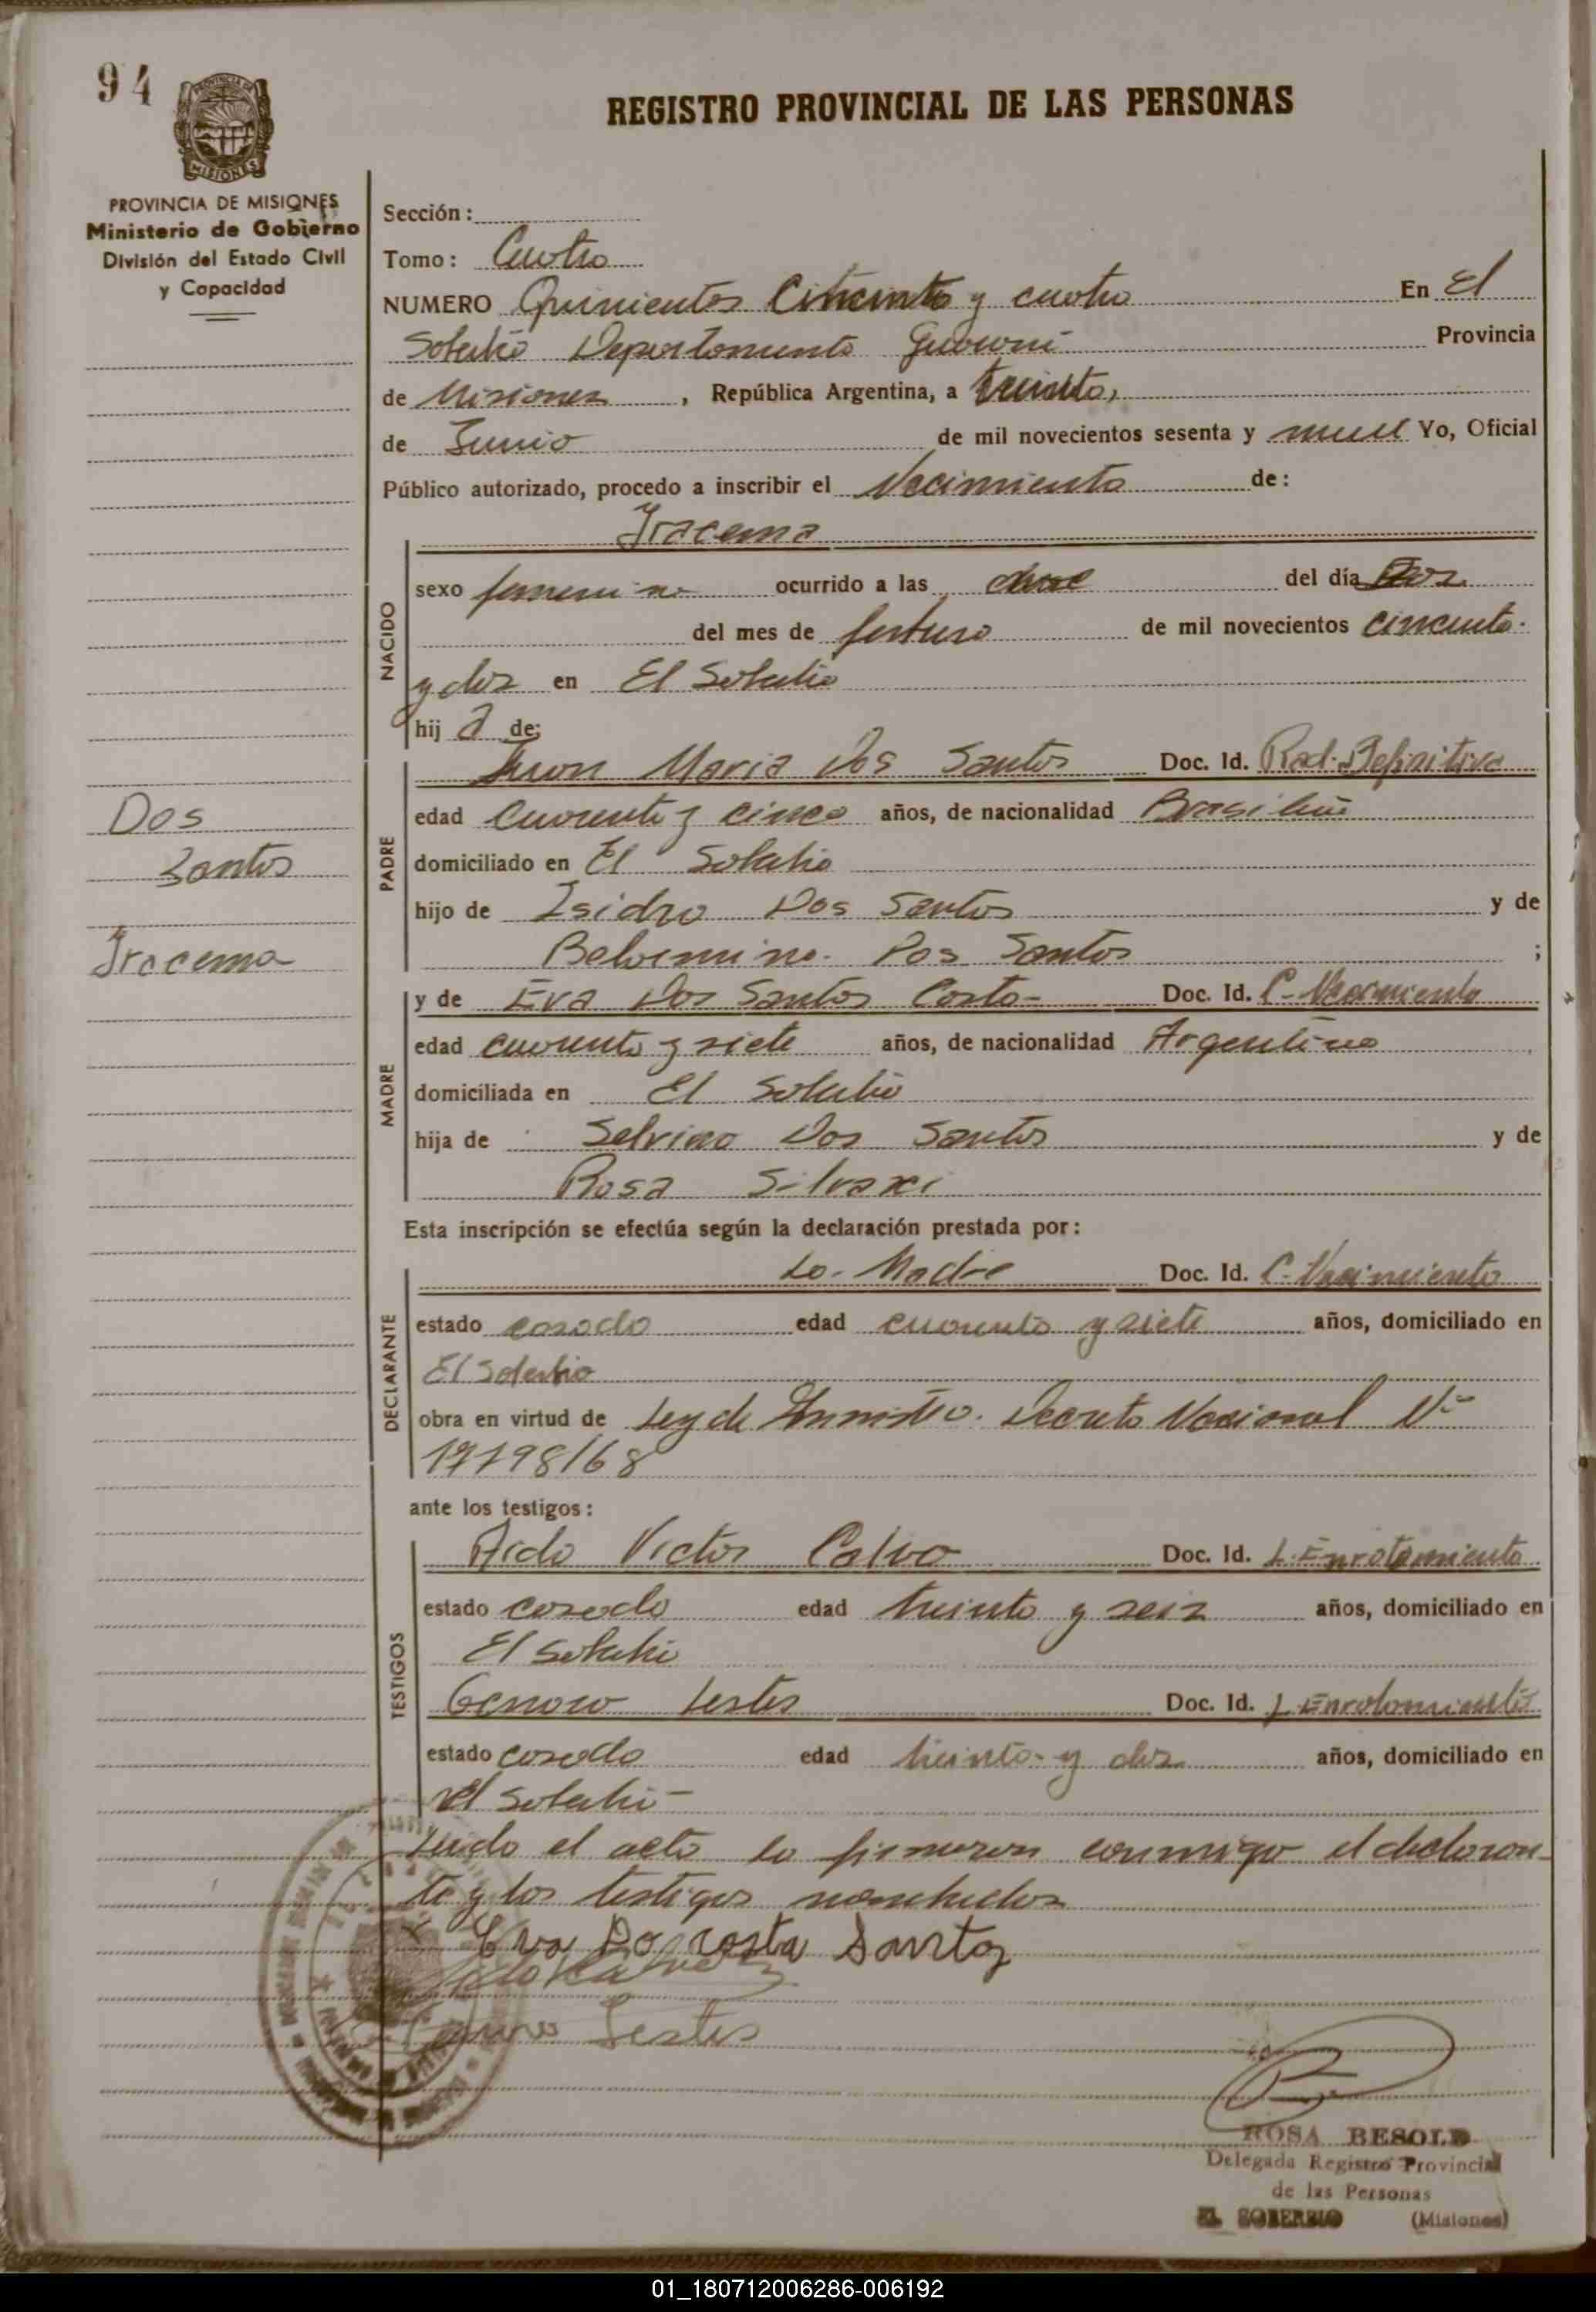 94
PROVINCIA DE MISIONES
Ministerio de Gobierno
División del Estado Civil
y Capacidad
REGISTRO PROVINCIAL DE LAS PERSONAS
Sección:
Tomo: Cuatro
NUMERO Quinientos Cincuenta y cuatro En El
Soberbio Departamento Guaraní Provincia
de Misiones, República Argentina, a treinta,
de Junio de mil novecientos sesenta y nueve Yo, Oficial
Público autorizado, procedo a inscribir el Nacimiento de:
Iracema
NACIDO
sexo femenino ocurrido a las del día Dos
del mes de febrero de mil novecientos cincuenta
y dos en El Soberbio
hij a de:
PADRE
Juan Maria Dos Santos Doc. Id. Rad. Definitiva
edad cuarenta y cinco años, de nacionalidad Brasileña
domiciliado en El Soberbio
hijo de Isidro Dos Santos y de
Belarmina Dos Santos ;
Dos
Santos
Iracema
MADRE
y de Eva Dos Santos Costa- Doc. Id. C. Nacimiento
edad cuarenta y siete años, de nacionalidad Argentina
domiciliada en El Soberbio
hija de Selvino Dos Santos y de
Rosa
Esta inscripción se efectúa según la declaración prestada por:
DECLARANTE
La Madre Doc. Id. C. Nacimiento
estado casado edad cuarenta y siete años, domiciliado en
El Soberbio
obra en virtud de Ley de Amnistía. Decreto Nacional Nº
17798/68
ante los testigos:
TESTIGOS
Aido Victor Calvo Doc. Id. L. Enrolamiento
estado casado edad treinta y seis años, domiciliado en
El Soberbio
Genaro Lestes Doc. Id. L. Enrolamiento
estado casado edad treinta y dos años, domiciliado en
El Soberbio-
Leida el acta la firmaron conmigo el declaran-
te y los testigos nombrados
Eva Do costa Santos
ROSA BESOLD
Delegada Registro Provincial
de las Personas
EL SOBERBIO (Misiones)
01_180712006286-006192